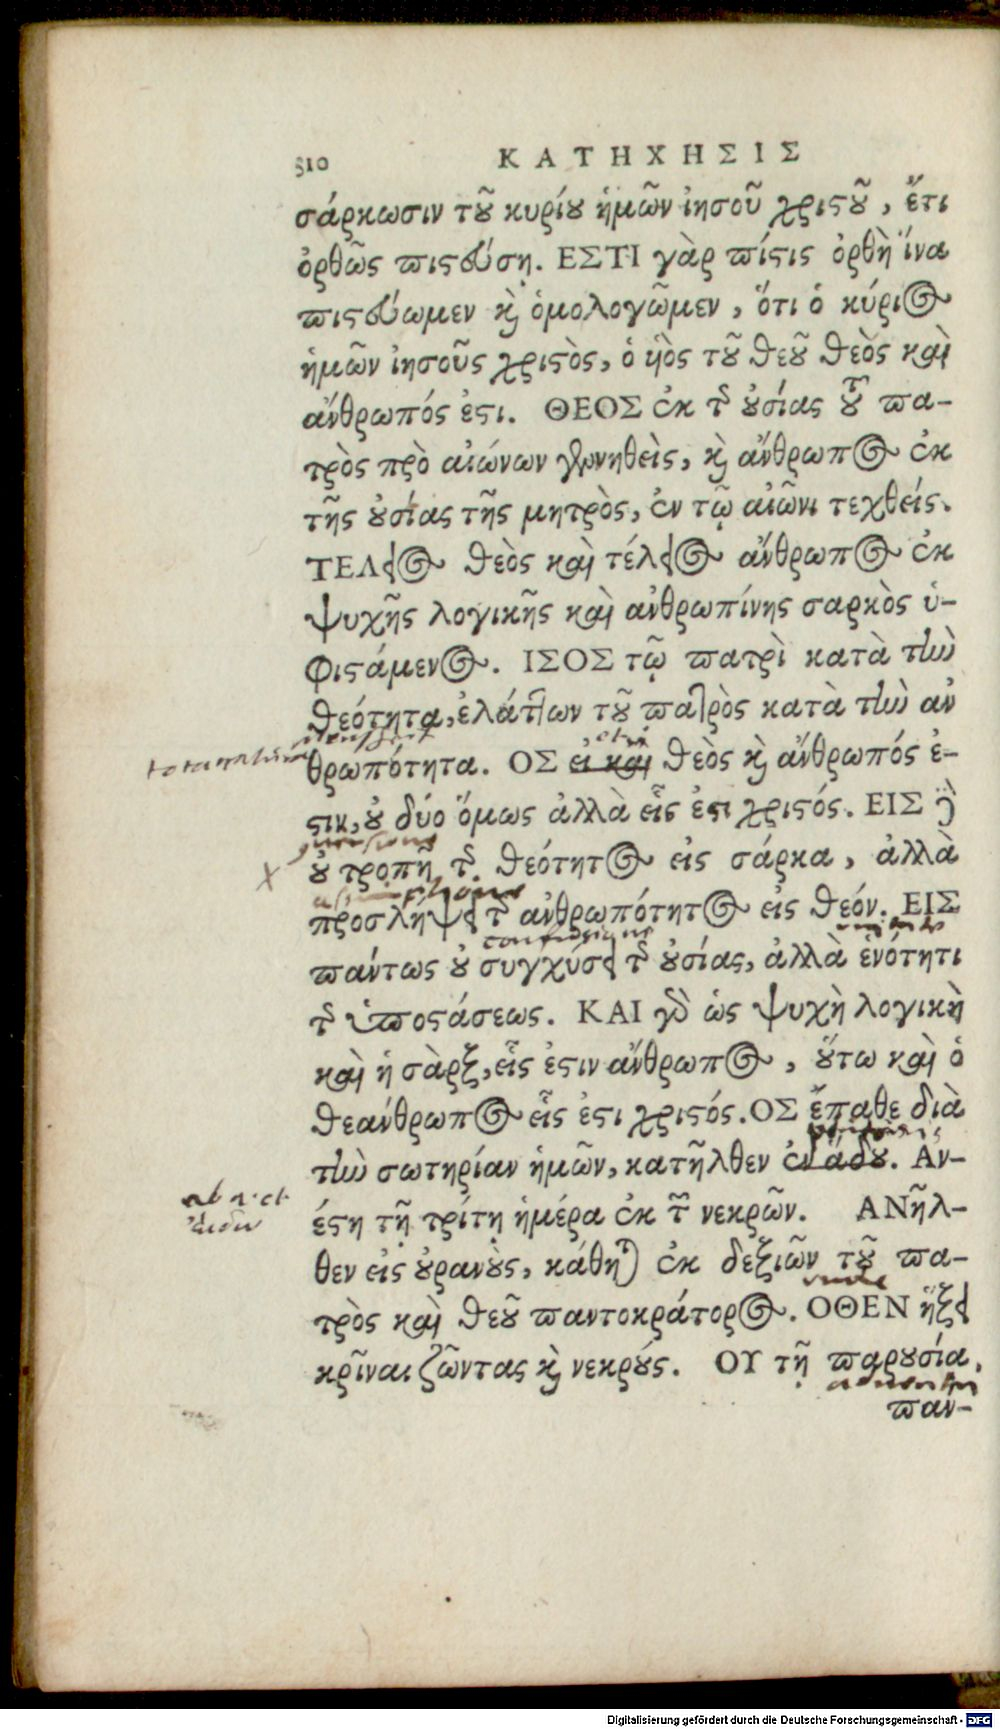 510 ΚΑΤΗΧΗΣΙΣ
σάρκωσιν τȣ͂ κυρίȣ ἡμῶν ἰησοῦ χριϛȣ͂, ἔτι
ὀρθῶς πιϛεύσῃ. ΕΣΤΙ γὰρ πίϛις ὀρθὴ ἵνα
πιϛεύωμεν ϗ̀ ὁμολογῶμεν, ὅτι ὁ κύριος
ἡμῶν ἰησοῦς χριϛὸς, ὁ ὑὸς τȣ͂ θεȣ͂ θεὸς καὶ
ἄνθρωπός ἐϛι. ΘΕΟΣ ἐκ τῆς ȣ̓σίας τȣ͂ πα-
τρὸς πρὸ αἰώνων γεννηθεὶς, ϗ̀ ἄνθρωπος ἐκ
τῆς ȣ̓σίας τῆς μητρὸς, ἐν τῷ αἰῶνι τεχθείς.
ΤΕΛειος θεὸς καὶ τέλειος ἄνθρωπος ἐκ
ψυχῆς λογικῆς καὶ ἀνθρωπίνης σαρκὸς ὑ-
φιϛάμενος. ΙΣΟΣ τῷ πατρὶ κατὰ τὴν
θεότητα, ἐλάττων τȣ͂ πατρὸς κατὰ τὴν ἀν
θρωπότητα. ΟΣ εἰ καὶ θεὸς ϗ̀ ἄνθρωπός ἐ-
ϛιν, ȣ̓ δύο ὅμως ἀλλὰ εἷς ἐϛι χριϛός. ΕΙΣ δὲ
ȣ̓ τροπῇ τῆς θεότητος εἰς σάρκα, ἀλλὰ
X
προσλήψει τῆς ἀνθρωπότητος εἰς θεόν. ΕΙΣ
πάντως ȣ̓ συγχύσει τῆς ȣ̓σίας, ἀλλὰ ἑνότητι
τῆς ὑποϛάσεως. ΚΑΙ γὰρ ὡς ψυχὴ λογικὴ
καὶ ἡ σὰρξ, εἷς ἐϛιν ἄνθρωπος, ȣ̔́τω καὶ ὁ
θεάνθρωπος εἷς ἐϛι χριϛός. ΟΣ ἔπαθε διὰ
τὴν σωτηρίαν ἡμῶν, κατῆλθεν ἐν ᾅδȣ. Αν-
έϛη τῇ τρίτῃ ἡμέρᾳ ἐκ τῶν νεκρῶν. ΑΝῆλ-
θεν εἰς ȣ̓ρανȣ̀ς, κάθηται ἐκ δεξιῶν τȣ͂ πα-
τρὸς καὶ θεȣ͂ παντοκράτορος. ΟΘΕΝ ἥξει
κρῖναι ζῶντας ϗ̀ νεκρȣ́ς. ΟΥ τῇ παρȣσίᾳ,
παν-
Digitalisierung gefördert durch die Deutsche Forschungsgemeinschaft - DFG